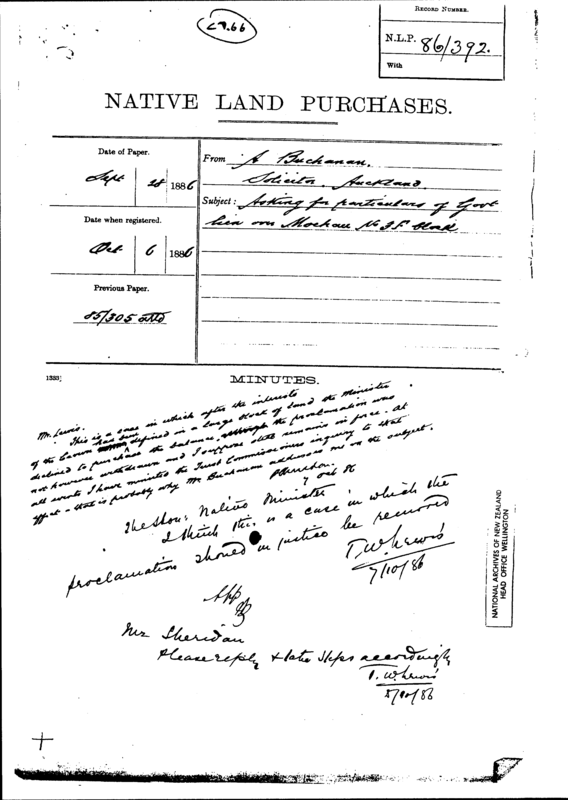 RECORD NUMBER.
N.L.P. 86/392.
With
NATIVE LAND PURCHASES.
Date of Paper.
Sept. 28 1886
Date when registered.
Oct 6 1886
Previous Paper.
85/305
From A Buchanan.
Solicitor, Auckland.
Subject: Asking for particulars of Govt
lien over No block
MINUTES.
Mr. Lewis.
This is a case in which after the interests
of the Crown had been defined in a large block of land the Minister
declined to purchase the balance, the proclamation was
not however withdrawn and I suppose still remains in force. At
all events I have minuted the Trust Commissioners inquiry to that
effect - that is probably why Mr Buchanan addresses me on the subject.
7 Oct 86
The Hon: Native Minister
I think this is a case in which the
proclamation should in justice be removed
T.W. Lewis
7/10/86
Mr Sheridan
Please reply & take steps accordingly
T. W. Lewis
8/10/86
NATIONAL ARCHIVES OF NEW ZEALAND
HEAD OFFICE WELLINGTON